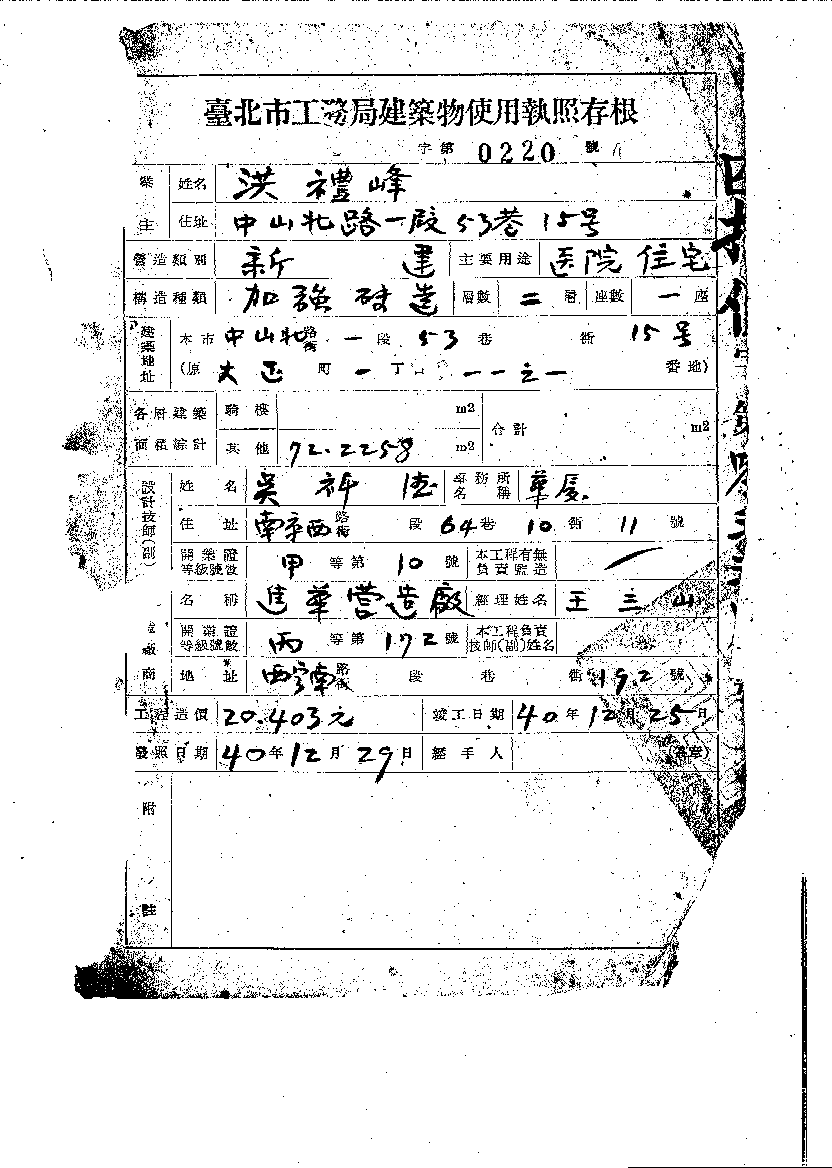 臺北市工務局建築物使用執照存根
字第 0220 號
業主 姓名 洪禮峰
住址 中山北路一段53巷15号
營造類別 新建 主要用途 医院住宅
構造種類 加強磚造 層數 二 層 座數 一 座
建築地址 本市 中山北路街 一 段 53 巷 街 15号
(原 大正 町 一 丁目 一一之一 番地)
各層建築面積綜計 騎樓 m2 合計 m2
其他 72.2258 m2
設計技師(副) 姓名 吳 德 事務所名稱 華厦
住址 南京西路街 段 64 巷 10 街 11 號
開業證等級號數 甲 等第 10 號 本工程有無負責監造
名稱 進華營造廠 經理姓名 王三山
開業證等級號數 丙 等第 172 號 本工程負責技師(副)姓名
商 地址 西寧南路街 段 巷 街 192 號
工程造價 20.403元 竣工日期 40年12月25日
發照日期 40年12月29日 經手人 (簽章)
附
註